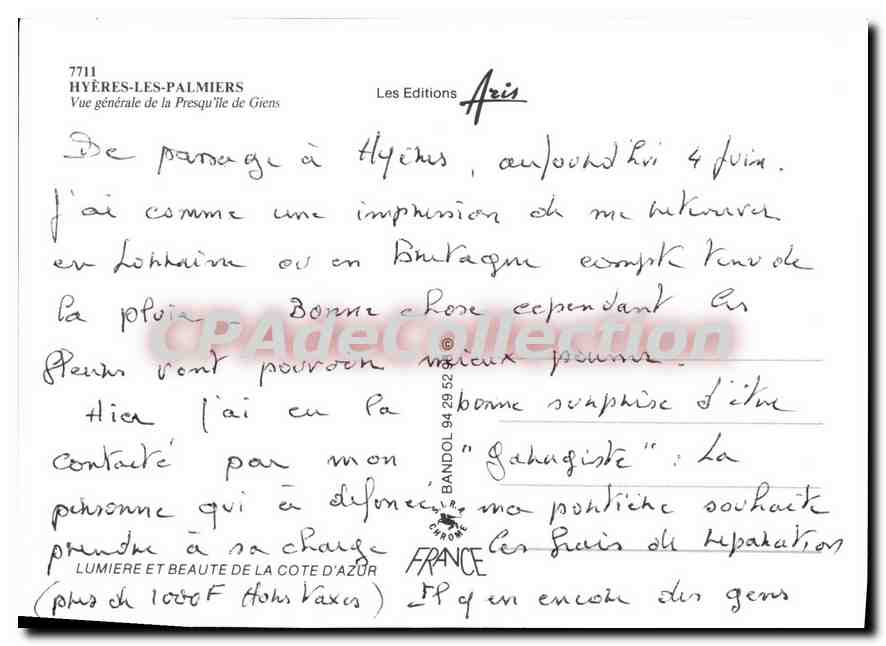 7711
HYÈRES-LES-PALMIERS
Vue générale de la Presqu'île de Giens
Les Editions Aris
De passage à Hyères, aujourd'hui 4 Juin.
J'ai comme une impression de me retrouver
en Lorraine ou en Bretagne compte tenu de
la pluie. Bonne chose cependant les
fleurs vont pouvoir mieux pousser.
Hier j'ai eu la bonne surprise d'être
contacté par mon "garagiste" : La
personne qui a défoncé ma portière souhaite
prendre à sa charge les frais de réparation
(près de 1000F Hors Taxes) Il y en encore des gens
CPAdeCollection ©
BANDOL 94 29 52
S.I.R.A. CHROME
FRANCE
LUMIERE ET BEAUTE DE LA COTE D'AZUR